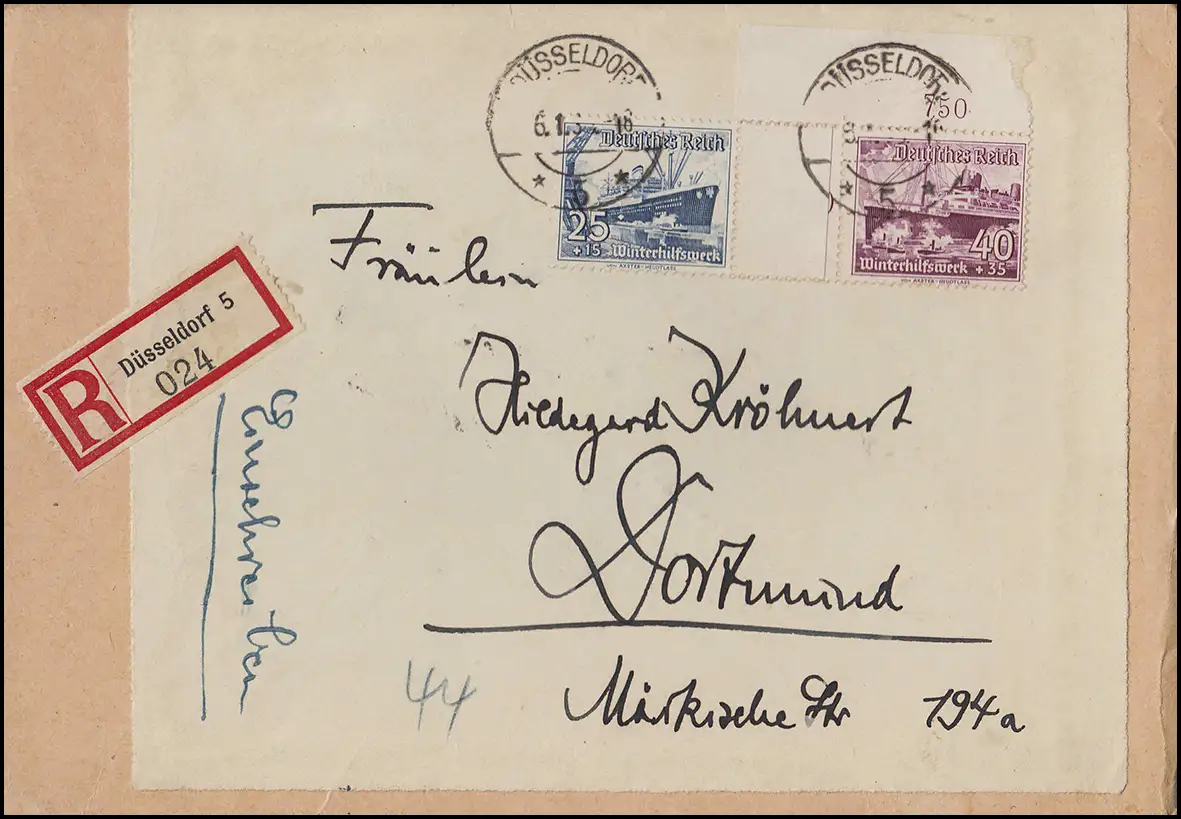 DÜSSELDORF
6.1.3 -18
* 5 *
DÜSSELDORF
* 5 *
750
Deutsches Reich
25
+15 Winterhilfswerk
VON AXSTER-HEUDTLASS
Deutsches Reich
40
Winterhilfswerk + 35
VON AXSTER-HEUDTLASS
R Düsseldorf 5
024
Einschreiben
Fräulein
Hildegard Kröhnert
Dortmund
Märkische Str 194a
44